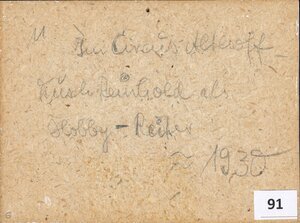 Im Circus Althoff
Reinhold als
Hobby-Reiter
1930
91